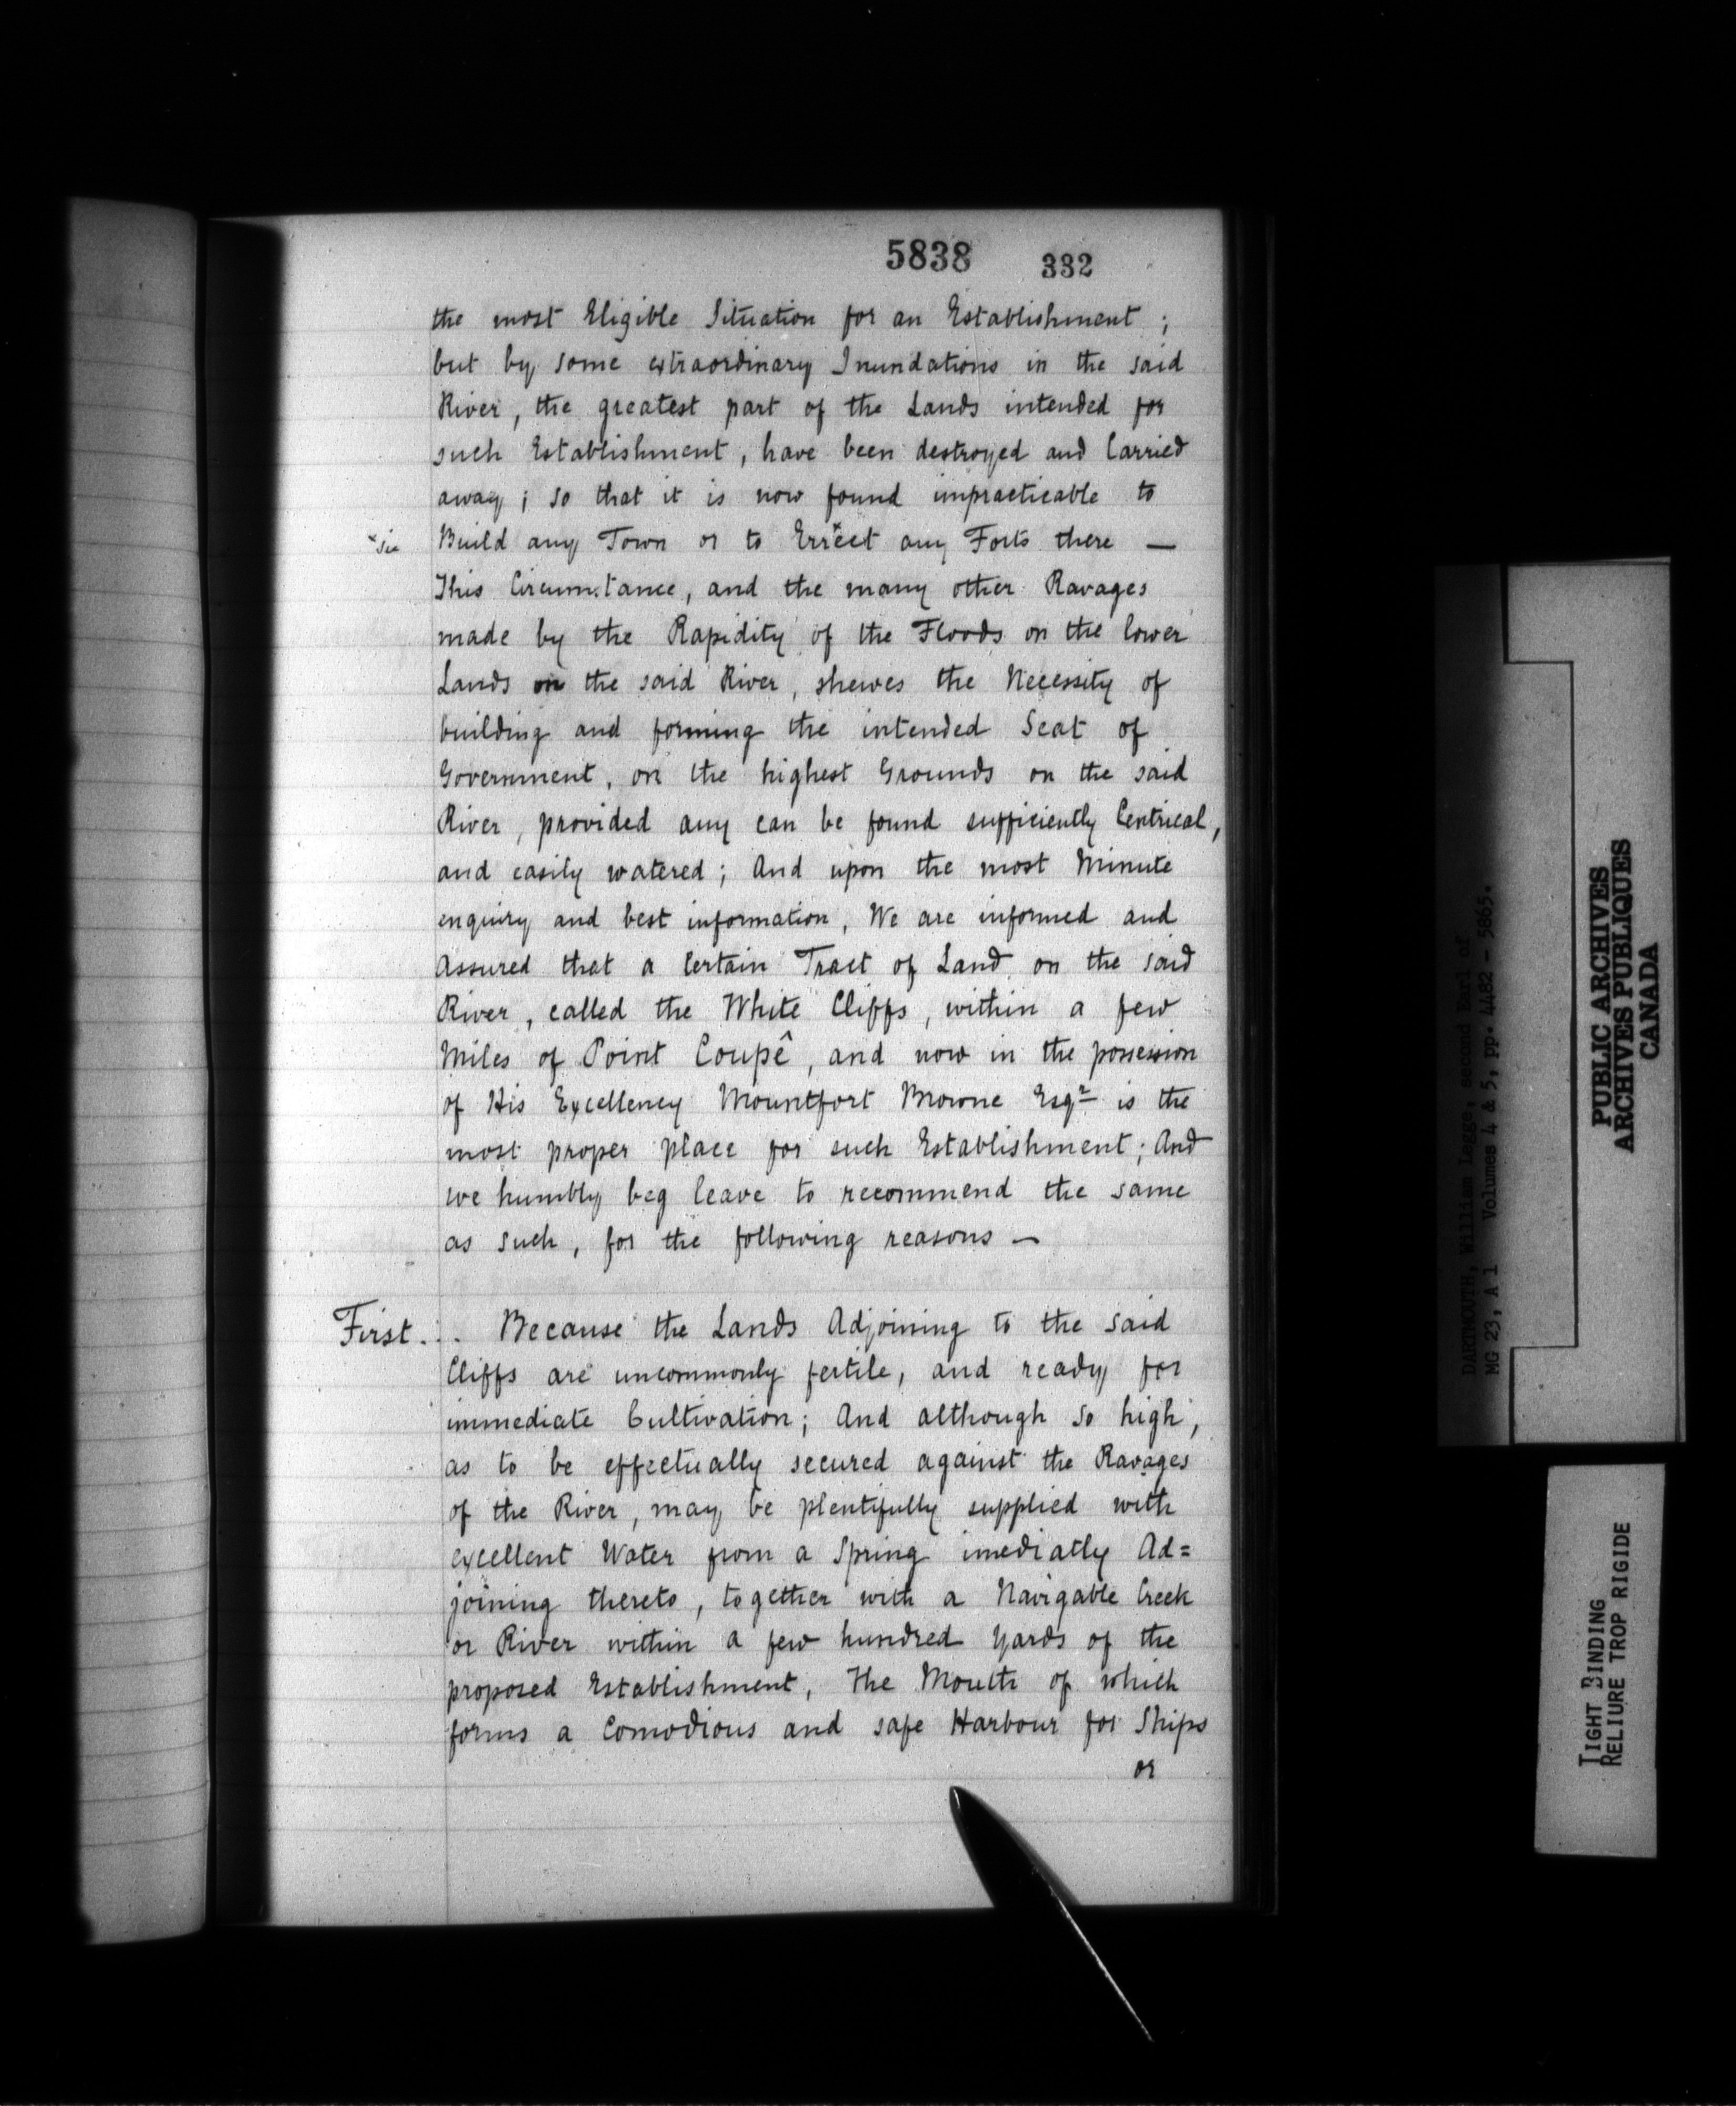 5838 332
the most Eligible Situation for an Establishment ;
but by some extraordinary Inundations in the said
River, the greatest part of the Lands intended for
such Establishment, have been destroyed and Carried
away ; so that it is now found impracticable to
*sic Build any Town or to Errect* any Forts there —
This Circumstance, and the many other Ravages
made by the Rapidity of the Floods on the lower
Lands on the said River, shewes the Necessity of
building and forming the intended Seat of
Government, on the highest Grounds on the said
River, provided any can be found sufficiently Centrical,
and easily watered ; And upon the most Minute
enquiry and best information, We are informed and
Assured that a Certain Tract of Land on the said
River, called the White Cliffs, within a few
Miles of Point Coupê, and now in the possession
of His Excellency Mountfort Browne Esqr is the
most proper place for such Establishment ; And
we humbly beg leave to recommend the same
as such, for the following reasons —
First . . . Because the Lands Adjoining to the said
Cliffs are uncommonly fertile, and ready for
immediate Cultivation ; And although so high,
as to be effectually secured against the Ravages
of the River, may be plentifully supplied with
excellent Water from a Spring imediatly Ad=
joining thereto, together with a Navigable Creek
or River within a few hundred Yards of the
proposed Establishment, The Mouth of which
forms a Comodious and safe Harbour for Ships
or
DARTMOUTH, William Legge, second Earl of
MG 23, A 1 Volumes 4 & 5, pp. 4482 - 5865.
PUBLIC ARCHIVES
ARCHIVES PUBLIQUES
CANADA
TIGHT BINDING
RELIURE TROP RIGIDE